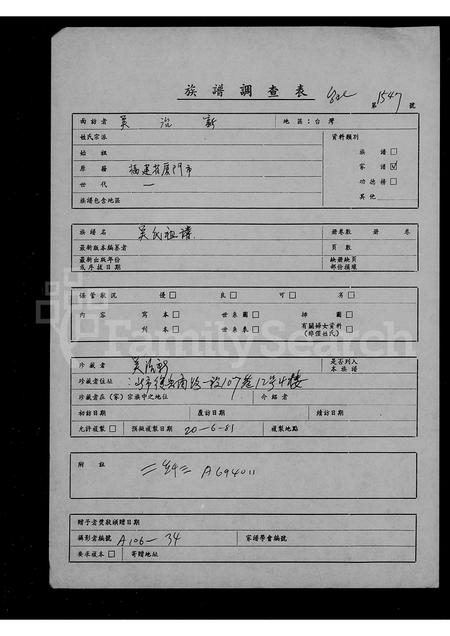 族譜調查表
第1547號
面訪者 吳治新 地區：台灣
姓氏宗派 資料類別
始祖 族譜□
原籍 福建省廈門市 家譜☑
世代 一 功德榜□
族譜包含地區 其他
族譜名 吳氏祖譜 冊卷數 冊 卷
最新版本編纂者 頁數
最新出版年份或序跋日期 缺冊缺頁部份損壞
保管狀況 優□ 良□ 可□ 劣□
內容 寫本□ 世系圖□ 排圖□
刊本□ 世系表□ 有關婦女資料(非僅姓氏)□
珍藏者 吳治新 是否列入本族譜
珍藏者住址 107巷12号4樓
珍藏者在(家)宗族中之地位 介紹者
初訪日期 覆訪日期 續訪日期
允許複製□ 預擬複製日期 20-6-81 複製地點
附註 A694011
贈予者獎敘頒贈日期
攝影者編號 A106-34 家譜學會編號
要求複本□ 寄贈地址
FamilySearch